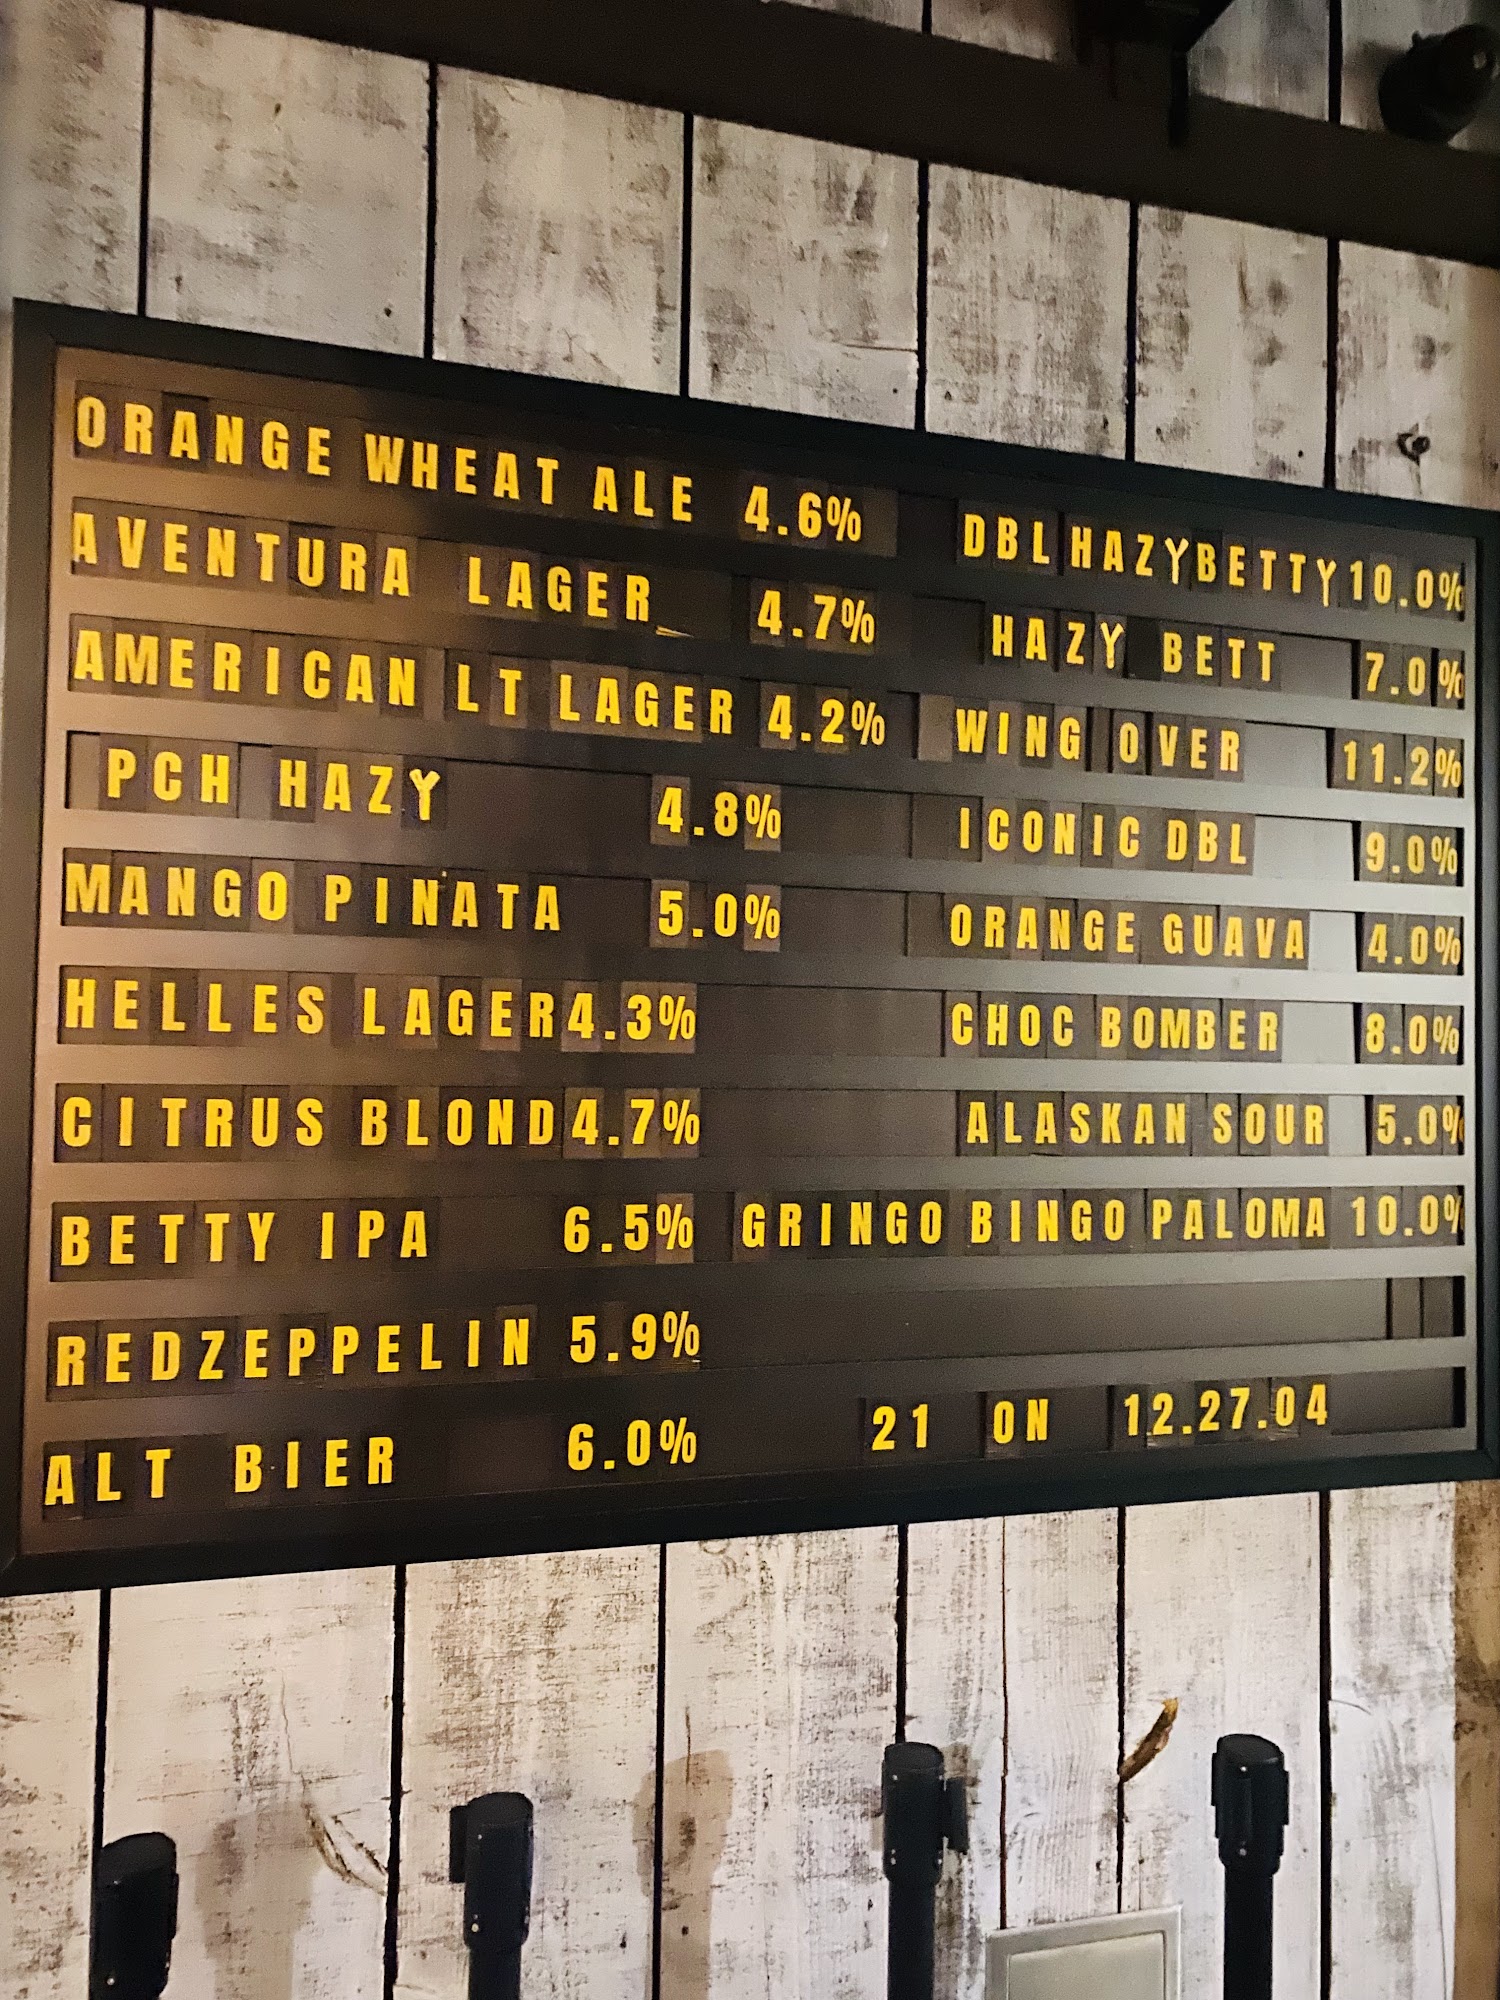 ORANGE WHEAT ALE 4.6%
AVENTURA LAGER 4.7%
AMERICAN LT LAGER 4.2%
PCH HAZY 4.8%
MANGO PINATA 5.0%
HELLES LAGER 4.3%
CITRUS BLOND 4.7%
BETTY IPA 6.5%
REDZEPPELIN 5.9%
ALT BIER 6.0%
DBL HAZY BETTY 10.0%
HAZY BETT 7.0%
WING OVER 11.2%
ICONIC DBL 9.0%
ORANGE GUAVA 4.0%
CHOC BOMBER 8.0%
ALASKAN SOUR 5.0%
GRINGO BINGO PALOMA 10.0%
21 ON 12.27.04